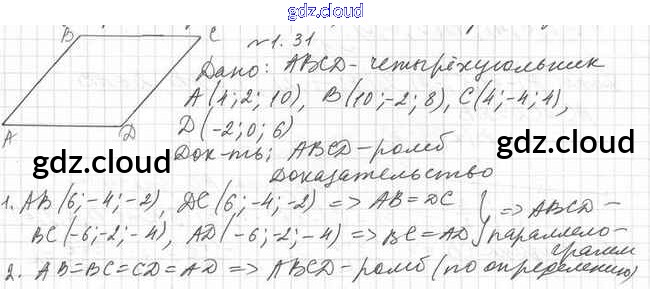 gdz.cloud
B C
№1.31
Дано: ABCD - четырёхугольник
A(4; 2; 10), B(10; -2; 8), C(4; -4; 4),
D(-2; 0; 6)
A D
Док-ть: ABCD - ромб
gdz.cloud gdz.cloud
Доказательство
1. AB(6; -4; -2), DC(6; -4; -2) => AB = DC } => ABCD -
BC(-6; -2; -4), AD(-6; -2; -4) => BC = AD } параллело-
грамм
2. AB = BC = CD = AD => ABCD - ромб (по определению)
gdz.cloud gdz.cloud